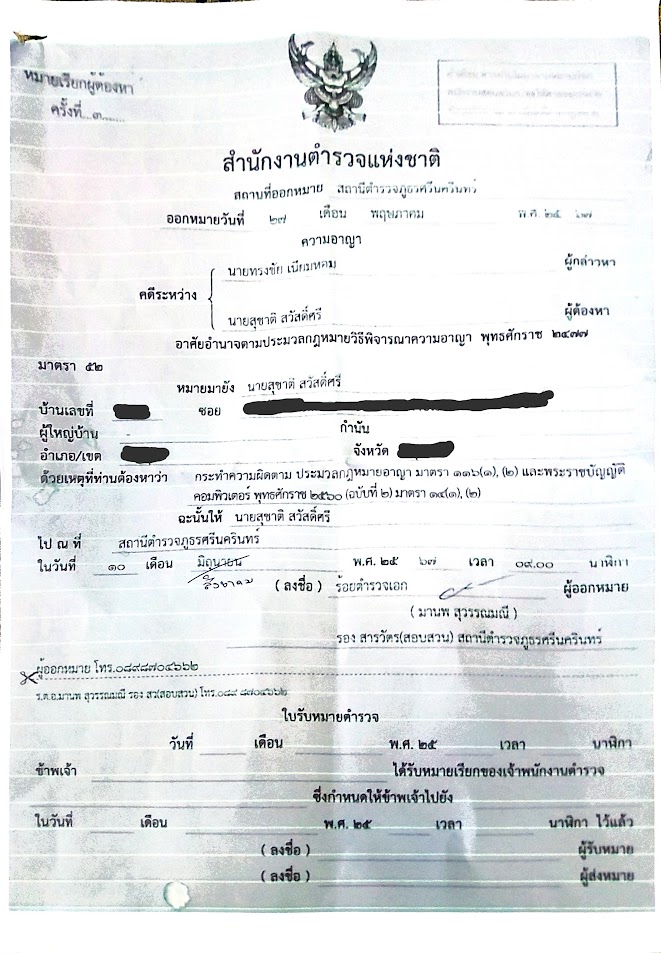 หมายเรียกผู้ต้องหา
ครั้งที่...๓.......
สำนักงานตำรวจแห่งชาติ
สถานที่ออกหมาย สถานีตำรวจภูธรศรีนครินทร์
ออกหมายวันที่ ๒๗ เดือน พฤษภาคม พ.ศ. ๒๕ ๖๗
ความอาญา
นายทรงชัย เนียมหอม ผู้กล่าวหา
คดีระหว่าง
นายสุชาติ สวัสดิ์ศรี ผู้ต้องหา
อาศัยอำนาจตามประมวลกฎหมายวิธีพิจารณาความอาญา พุทธศักราช ๒๔๗๗
มาตรา ๕๒
หมายมายัง นายสุชาติ สวัสดิ์ศรี
บ้านเลขที่ ซอย
ผู้ใหญ่บ้าน - กำนัน
อำเภอ/เขต จังหวัด
ด้วยเหตุที่ท่านต้องหาว่า กระทำความผิดตาม ประมวลกฎหมายอาญา มาตรา ๑๑๖(๑), (๒) และพระราชบัญญัติ
คอมพิวเตอร์ พุทธศักราช ๒๕๖๐ (ฉบับที่ ๒) มาตรา ๑๔(๑), (๒)
ฉะนั้นให้ นายสุชาติ สวัสดิ์ศรี
ไป ณ ที่ สถานีตำรวจภูธรศรีนครินทร์
ในวันที่ ๑๐ เดือน มิถุนายน พ.ศ. ๒๕ ๖๗ เวลา ๐๙.๐๐ นาฬิกา
สิงหาคม ( ลงชื่อ ) ร้อยตำรวจเอก ผู้ออกหมาย
( มานพ สุวรรณมณี )
รอง สารวัตร(สอบสวน) สถานีตำรวจภูธรศรีนครินทร์
ผู้ออกหมาย โทร.๐๘๙๘๗๐๔๖๖๒
ร.ต.อ.มานพ สุวรรณมณี รอง สว(สอบสวน) โทร.๐๘๙ ๘๗๐๔๖๖๒
ใบรับหมายตำรวจ
วันที่ เดือน พ.ศ. ๒๕ เวลา นาฬิกา
ข้าพเจ้า ได้รับหมายเรียกของเจ้าพนักงานตำรวจ
ซึ่งกำหนดให้ข้าพเจ้าไปยัง
ในวันที่ เดือน พ.ศ. ๒๕ เวลา นาฬิกา ไว้แล้ว
( ลงชื่อ ) ผู้รับหมาย
( ลงชื่อ ) ผู้ส่งหมาย